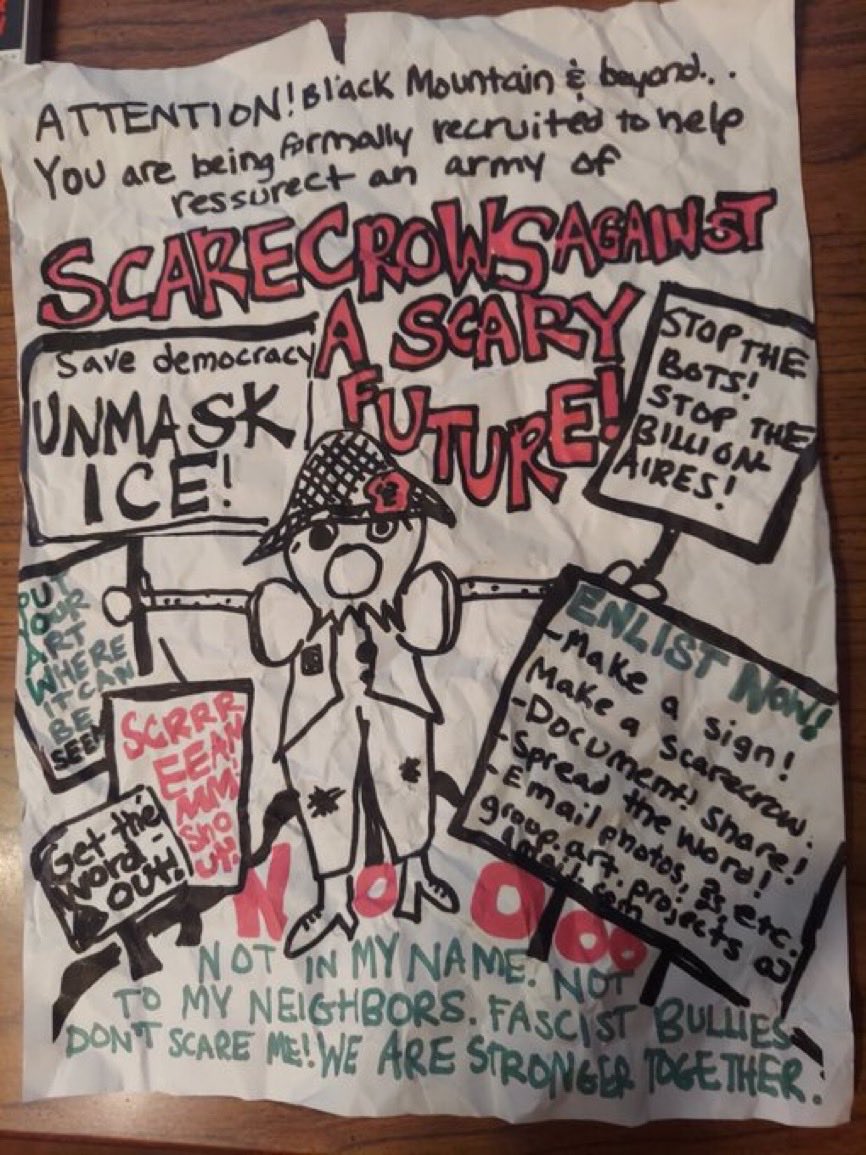 ATTENTION! Black Mountain & beyond..
You are being formally recruited to help
ressurect an army of
SCARECROWS AGAINST
A SCARY
FUTURE!
Save democracy
UNMASK
ICE!
STOP THE
BOTS!
STOP THE
BILLION-
AIRES!
PUT
YOUR
ART
WHERE
IT CAN
BE
SEEN
SCRRR
EEAM
MM!
SHO
UT!
Get the
word-
OUT!
ENLIST NOW!
-Make a sign!
Make a scarecrow.
-Document! Share!
-Spread the word!
-Email photos, ?s, etc.
group.art.projects@
gmail.com
N O O O O
NOT IN MY NAME. NOT
TO MY NEIGHBORS. FASCIST BULLIES
DON'T SCARE ME! WE ARE STRONGER TOGETHER.